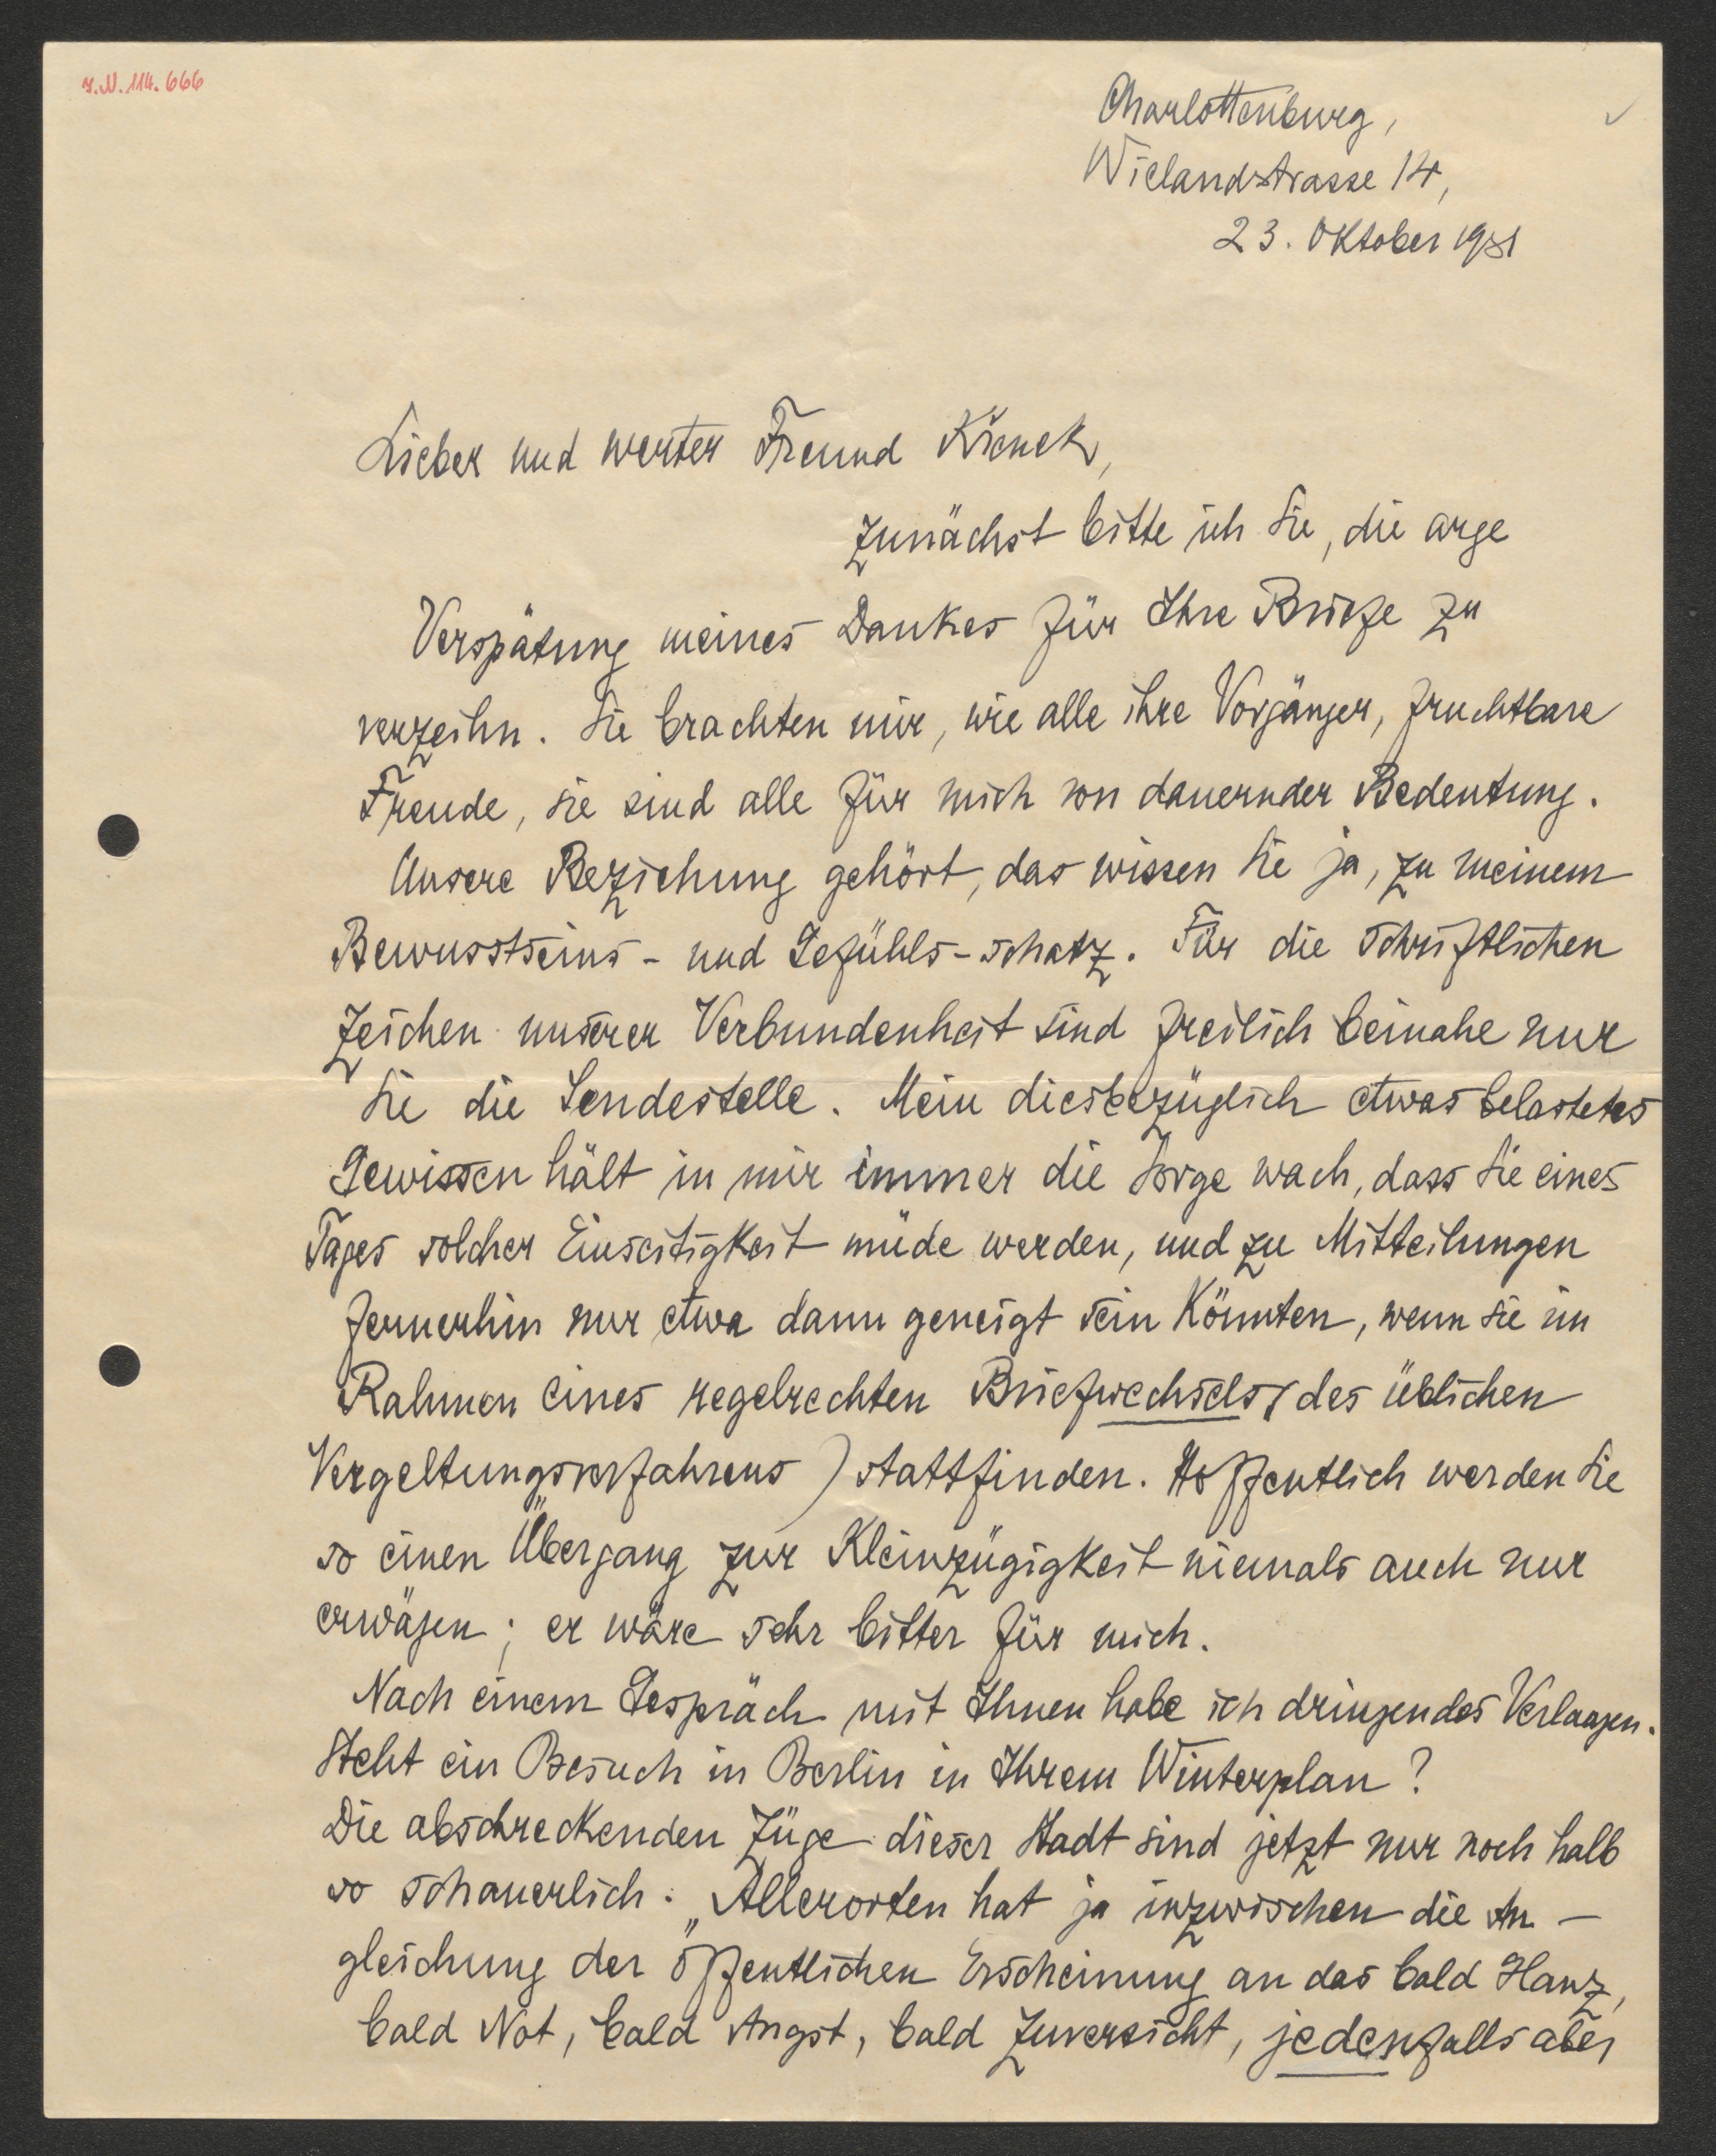 J.N. 114.666
Charlottenburg,
Wielandstrasse 14,
23. Oktober 1931
Lieber und werter Freund Křenek,
zunächst bitte ich Sie, die arge
Verspätung meines Dankes für Ihre Briefe zu
verzeihn. Sie brachten mir, wie alle ihre Vorgänger, fruchtbare
Freude, sie sind alle für mich von dauernder Bedeutung.
Unsere Beziehung gehört, das wissen Sie ja, zu meinem
Bewusstseins- und Gefühls-schatz. Für die schriftlichen
Zeichen unserer Verbundenheit sind freilich beinahe nur
Sie die Sendestelle. Mein diesbezüglich etwas belastetes
Gewissen hält in mir immer die Sorge wach, dass Sie eines
Tages solcher Einseitigkeit müde werden, und zu Mitteilungen
fernerhin nur etwa dann geneigt sein könnten, wenn sie im
Rahmen eines regelrechten Briefwechsels (des üblichen
Vergeltungsverfahrens) stattfinden. Hoffentlich werden Sie
so einen Übergang zur Kleinzügigkeit niemals auch nur
erwägen; er wäre sehr bitter für mich.
Nach einem Gespräch mit Ihnen habe ich dringendes Verlangen.
Steht ein Besuch in Berlin in Ihrem Winterplan?
Die abschreckenden Züge dieser Stadt sind jetzt nur noch halb
so schauerlich. „Allerorten hat ja inzwischen die An-
gleichung der öffentlichen Erscheinung an das bald
bald Not, bald Angst, bald Zuversicht, jedenfalls aber